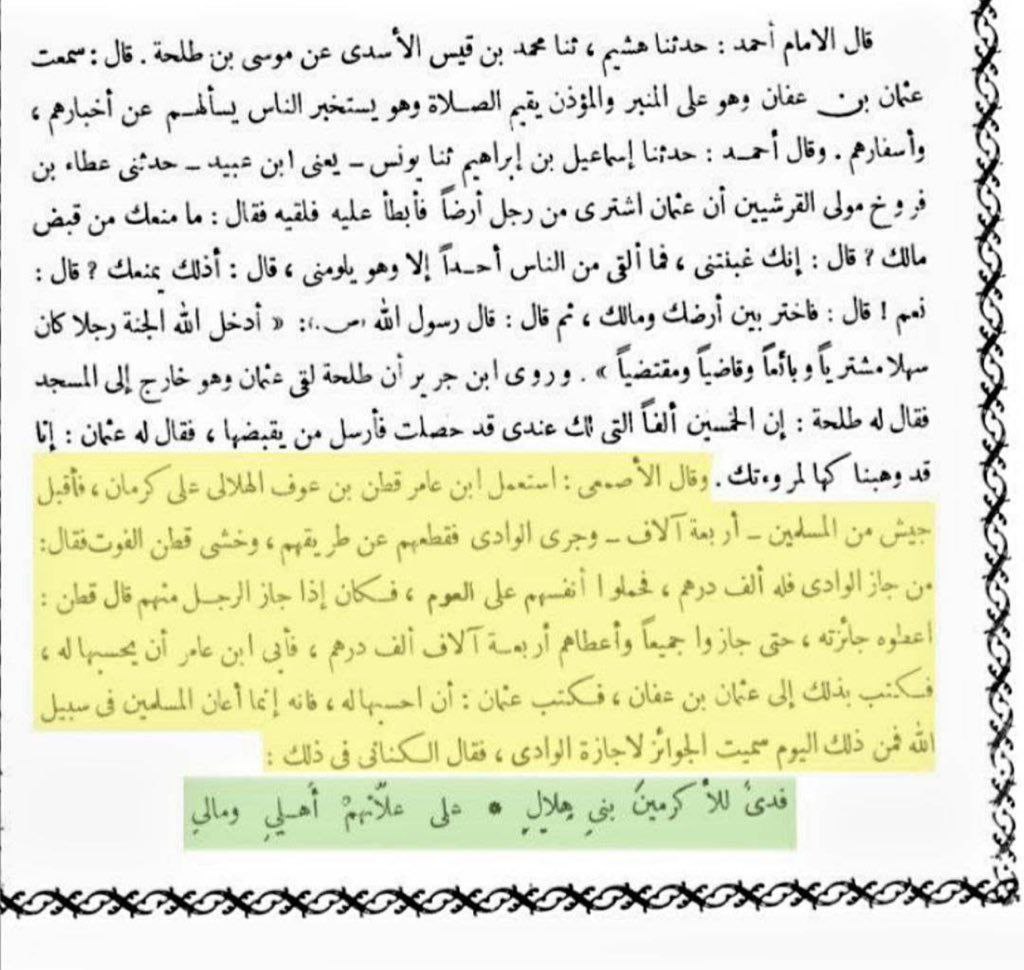 قال الامام أحمد : حدثنا هشيم ، ثنا محمد بن قيس الأسدى عن موسى بن طلحة . قال : سمعت
عثمان بن عفان وهو على المنبر والمؤذن يقيم الصلاة وهو يستخبر الناس يسألهم عن أخبارهم ،
وأسفارهم . وقال أحمد : حدثنا إسماعيل بن إبراهيم ثنا يونس ـ يعنى ابن عبيد ـ حدثنى عطاء بن
فروخ مولى القرشيين أن عثمان اشترى من رجل أرضاً فأبطأ عليه فلقيه فقال : ما منعك من قبض
مالك ؟ قال : إنك غبنتنى ، فما ألقى من الناس أحداً إلا وهو يلومنى ، قال : أذلك يمنعك ؟ قال :
نعم ! قال : فاختر بين أرضك ومالك ، ثم قال : قال رسول الله (ص.): « أدخل الله الجنة رجلا كان
سهلا مشترياً وبائعاً وقاضياً ومقتضياً » . وروى ابن جرير أن طلحة لقى عثمان وهو خارج إلى المسجد
فقال له طلحة : إن الخمسين ألفاً التى لك عندى قد حصلت فأرسل من يقبضها ، فقال له عثمان : إنا
قد وهبناكها لمروءتك . وقال الأصمعى : استعمل ابن عامر قطن بن عوف الهلالى على كرمان ، فأقبل
جيش من المسلمين ـ أربعة آلاف ـ وجرى الوادى فقطعهم عن طريقهم ، وخشى قطن الفوت فقال:
من جاز الوادى فله ألف درهم ، فحملوا أنفسهم على العوم ، فكان إذا جاز الرجل منهم قال قطن :
اعطوه جائزته ، حتى جازوا جميعاً وأعطاهم أربعة آلاف ألف درهم ، فأبى ابن عامر أن يحسبها له ،
فكتب بذلك إلى عثمان بن عفان ، فكتب عثمان : أن احسبها له ، فانه إنما أعان المسلمين فى سبيل
الله فمن ذلك اليوم سميت الجوائز لاجازة الوادى ، فقال الكنانى فى ذلك :
فدىً للأكرمينَ بنيِ هِلالٍ * على علّاتهمْ أهليِ ومالي